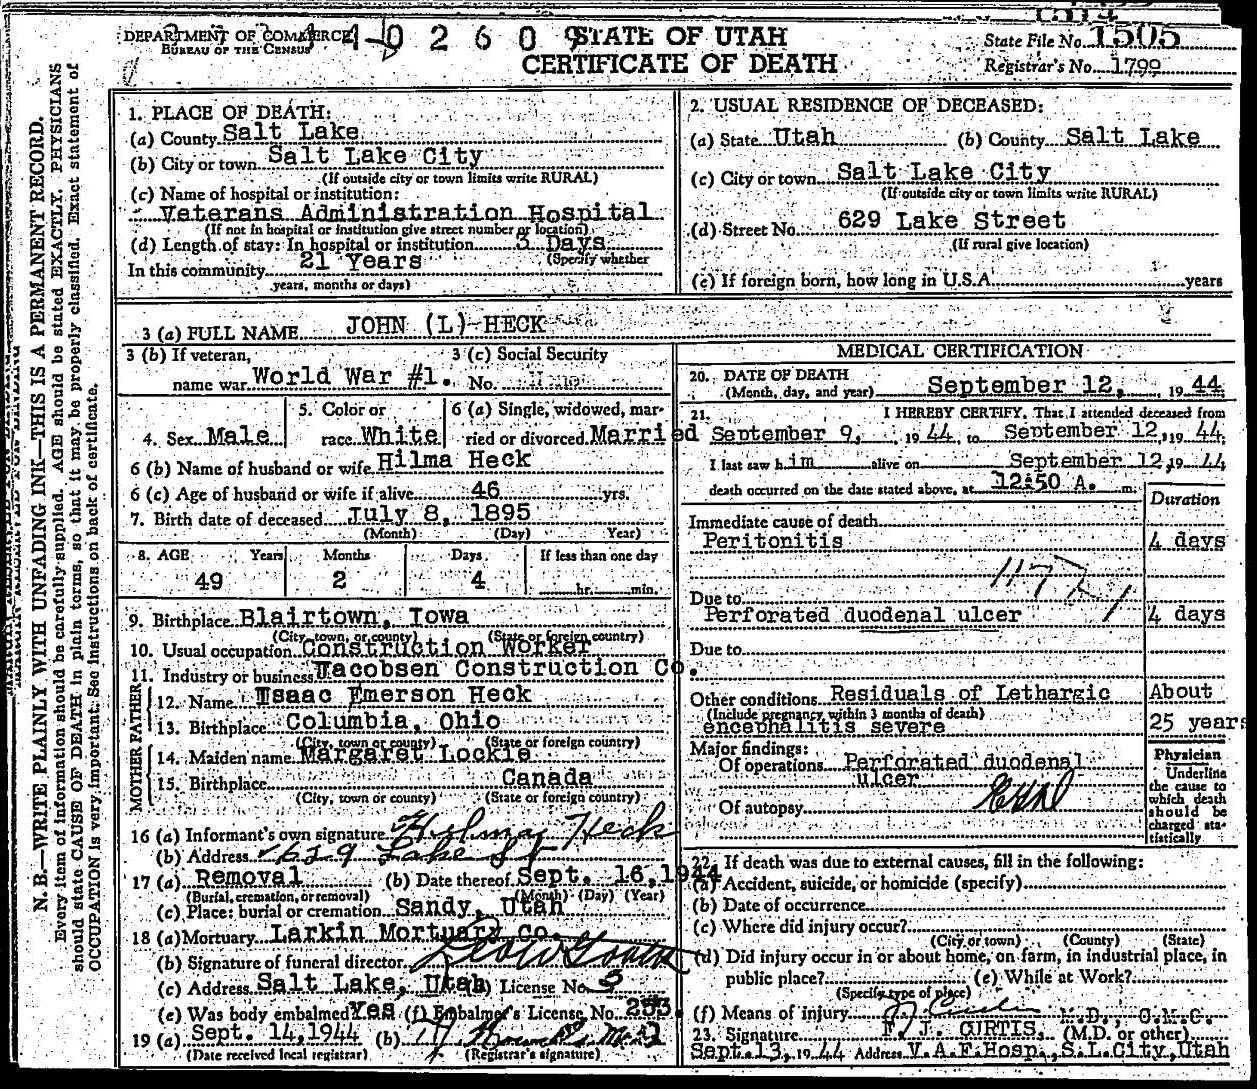 DEPARTMENT OF COMMERCE
BUREAU OF THE CENSUS
0 2 6 0 9
STATE OF UTAH
CERTIFICATE OF DEATH
State File No. 1505
Registrar's No. 1799
N. B.—WRITE PLAINLY WITH UNFADING INK—THIS IS A PERMANENT RECORD.
Every item of information should be carefully supplied. AGE should be stated EXACTLY. PHYSICIANS
should state CAUSE OF DEATH in plain terms, so that it may be properly classified. Exact statement of
OCCUPATION is very important. See instructions on back of certificate.
1. PLACE OF DEATH:
(a) County Salt Lake
(b) City or town Salt Lake City
(If outside city or town limits write RURAL)
(c) Name of hospital or institution:
Veterans Administration Hospital
(If not in hospital or institution give street number or location)
(d) Length of stay: In hospital or institution 3 Days
(Specify whether
In this community 21 Years
years, months or days)
2. USUAL RESIDENCE OF DECEASED:
(a) State Utah (b) County Salt Lake
(c) City or town Salt Lake City
(If outside city or town limits write RURAL)
(d) Street No. 629 Lake Street
(If rural give location)
(e) If foreign born, how long in U.S.A. years
3 (a) FULL NAME JOHN (L) HECK
3 (b) If veteran, name war World War #1.
3 (c) Social Security No.
4. Sex Male
5. Color or race White
6 (a) Single, widowed, married or divorced Married
6 (b) Name of husband or wife Hilma Heck
6 (c) Age of husband or wife if alive 46 yrs.
7. Birth date of deceased July 8, 1895
(Month) (Day) Year)
8. AGE Years Months Days If less than one day
49 2 4 hr. min.
9. Birthplace Blairtown, Iowa
(City, town, or county) (State or foreign country)
10. Usual occupation Construction Worker
11. Industry or business Jacobsen Construction Co.
FATHER
12. Name Isaac Emerson Heck
13. Birthplace Columbia, Ohio
(City, town or county) (State or foreign country)
MOTHER
14. Maiden name Margaret Lockie
15. Birthplace Canada
(City, town or county) (State or foreign country)
16 (a) Informant's own signature Hilma Heck
(b) Address 629 Lake St
17 (a) Removal (b) Date thereof Sept. 16, 1944
(Burial, cremation, or removal) (Month) (Day) (Year)
(c) Place: burial or cremation Sandy, Utah
18 (a) Mortuary Larkin Mortuary Co.
(b) Signature of funeral director
(c) Address Salt Lake, Utah (d) License No. 3
(e) Was body embalmed Yes (f) Embalmer's License No. 253.
19 (a) Sept. 14, 1944 (b)
(Date received local registrar) (Registrar's signature)
MEDICAL CERTIFICATION
20. DATE OF DEATH
(Month, day, and year) September 12, 1944.
21. I HEREBY CERTIFY, That I attended deceased from
September 9, 1944 to September 12, 1944.
I last saw him alive on September 12, 1944
death occurred on the date stated above, at 12:50 A. m.
Duration
Immediate cause of death
Peritonitis 4 days
117
Due to
Perforated duodenal ulcer 4 days
Due to
Other conditions Residuals of Lethargic About
(Include pregnancy within 3 months of death)
encephalitis severe 25 years
Major findings:
Of operations Perforated duodenal
ulcer
Of autopsy
Physician
Underline
the cause to
which death
should be
charged sta-
tistically
22. If death was due to external causes, fill in the following:
(a) Accident, suicide, or homicide (specify)
(b) Date of occurrence
(c) Where did injury occur?
(City or town) (County) (State)
(d) Did injury occur in or about home, on farm, in industrial place, in
public place? (e) While at Work?
(Specify type of place)
(f) Means of injury
M.D., C.M.C.
23. Signature F. J. CURTIS, (M.D. or other)
Sept. 13, 1944 Address V.A.F. Hosp., S.L. City, Utah